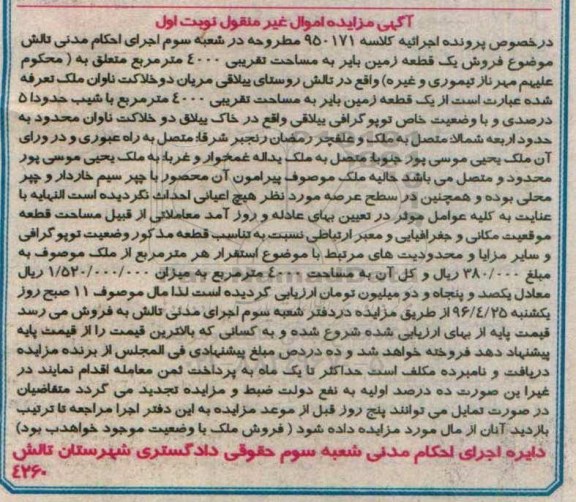 آگهی مزایده اموال غیر منقول نوبت اول
درخصوص پرونده اجرائیه کلاسه ۹۵۰۱۷۱ مطروحه در شعبه سوم اجرای احکام مدنی تالش
موضوع فروش یک قطعه زمین بایر به مساحت تقریبی ۴۰۰۰ مترمربع متعلق به ( محکوم
علیهم مهر ناز تیموری و غیره) واقع در تالش روستای ییلاقی مریان دوخلاکت ناوان ملک تعرفه
شده عبارت است از یک قطعه زمین بایر به مساحت تقریبی ۴۰۰۰ مترمربع با شیب حدودا ۵
درصدی و با وضعیت خاص توپو گرافی ییلاقی واقع در خاک ییلاق دو خلاکت ناوان محدود به
حدود اربعه شمالا: متصل به ملک و علفچر رمضان رنجبر شرقا: متصل به راه عبوری و در ورای
آن ملک یحیی موسی پور جنوبا: متصل به ملک یداله غمخوار و غربا: به ملک یحیی موسی پور
محدود و متصل می باشد حالیه ملک موصوف پیرامون آن محصور با چپر سیم خاردار و چپر
محلی بوده و همچنین در سطح عرصه مورد نظر هیچ اعیانی احداث نگردیده است النهایه با
عنایت به کلیه عوامل موثر در تعیین بهای عادله و روز آمد معاملاتی از قبیل مساحت قطعه
موقعیت مکانی و جغرافیایی و معبر ارتباطی نسبت به تناسب قطعه مذکور وضعیت توپو گرافی
و سایر مزایا و محدودیت های مرتبط با موضوع استقرار هر مترمربع از ملک موصوف به
مبلغ ۳۸۰/۰۰۰ ریال و کل آن به مساحت ۴۰۰۰ مترمربع به میزان ۱/۵۲۰/۰۰۰/۰۰۰ ریال
معادل یکصد و پنجاه و دو میلیون تومان ارزیابی گردیده است لذا مال موصوف ۱۱ صبح روز
یکشنبه ۹۶/۴/۲۵ از طریق مزایده دردفتر شعبه سوم اجرای مدنی تالش به فروش می رسد
قیمت پایه از بهای ارزیابی شده شروع شده و به کسانی که بالاترین قیمت را از قیمت پایه
پیشنهاد دهد فروخته خواهد شد و ده دردص مبلغ پیشنهادی فی المجلس از برنده مزایده
دریافت و نامبرده مکلف است حداکثر تا یک ماه به پرداخت ثمن معامله اقدام نمایند در
غیرا ین صورت ده درصد اولیه به نفع دولت ضبط و مزایده تجدید می گردد متقاضیان
در صورت تمایل می توانند پنج روز قبل از موعد مزایده به این دفتر اجرا مراجعه تا ترتیب
بازدید آنان از مال مورد مزایده داده شود ( فروش ملک با وضعیت موجود خواهدب بود)
دایره اجرای احکام مدنی شعبه سوم حقوقی دادگستری شهرستان تالش
۴۲۶۰